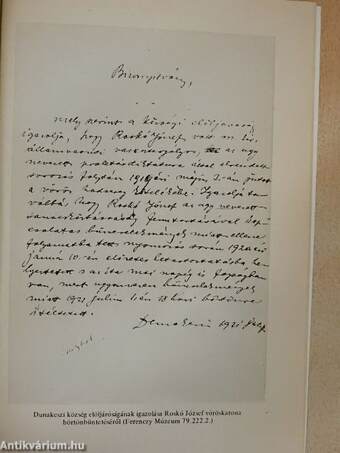 Bizonyitvány,
mely szerint a községi elöljáróság
igazolja, hogy Roskó József volt m. kir.
államvasúti az ugy
nevezett proletárdiktatura által elrendelt
sorozás folytán 1919 évi május 2-án jutott
a vörös hadsereg kötelékébe. Igazolja to-
vábbá hogy Roskó József az ugy nevezett
tanácsköztársaság fenntartásával
csalatos bűncselekmények miatt ellene
folyamatba tett nyomozás során 1920 évi
január 10-én előzetes letartóztatásba he-
lyeztetett s azóta mai napig is fogságban
van, mert ugyanezen bűncselekmények
miatt 1921. július 1-én 18 havi börtönre
itéltetett.
Dunakeszi 1921
Dunakeszi község elöljáróságának igazolása Roskó József vöröskatona
börtönbüntetéséről (Ferenczy Múzeum 79.222.2.)
antikvarium.hu